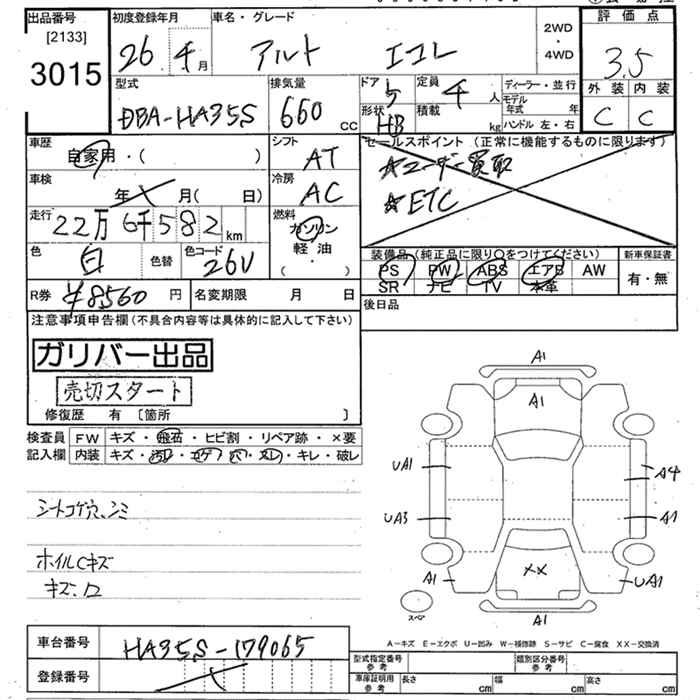 出品番号
[2133]
3015
初度登録年月
26年 月
車名・グレード
アルト エコL
2WD
・
4WD
評価点
3.5
外装 内装
C C
型式
DBA-HA35S
排気量
660 CC
ドア
5
形状
HB
定員
4 人
積載
kg
ディーラー・並行
モデル年式 年
ハンドル 左・右
車歴
自家用・( )
シフト
AT
セールスポイント(正常に機能するものに限ります)
☆ユーザー買取
☆ETC
車検
年 月( 日)
冷房
AC
走行
22万6千582km
燃料
ガソリン
軽油
( ・ )
色
白
色替
色コード
26U
装備品(純正品に限り○をつけてください)
PS PW ABS エアB AW
SR ナビ TV 本革
新車保証書
有・無
R券
¥8560円
名変期限 月 日
後日品
注意事項申告欄(不具合内容等は具体的に記入して下さい)
ガリバー出品
売切スタート
修復歴 有 〔箇所 〕
検査員記入欄
FW キズ・飛石・ヒビ割・リペア跡・×要
内装 キズ・汚レ・コゲ・穴・スレ・キレ・破レ
シートコゲ穴、シミ
ホイルCキズ
キズ、凹
A1
A1
UA1
A4
UA3
A1
A1
XX
UA1
A1
スペア
A-キズ E-エクボ U-凹み W-補修跡 S-サビ C-腐食 XX-交換済
車台番号
HA35S-179065
登録番号
型式指定番号
参考
類別区分番号
参考
車庫証明用
参考
長さ cm
幅 cm
高さ cm